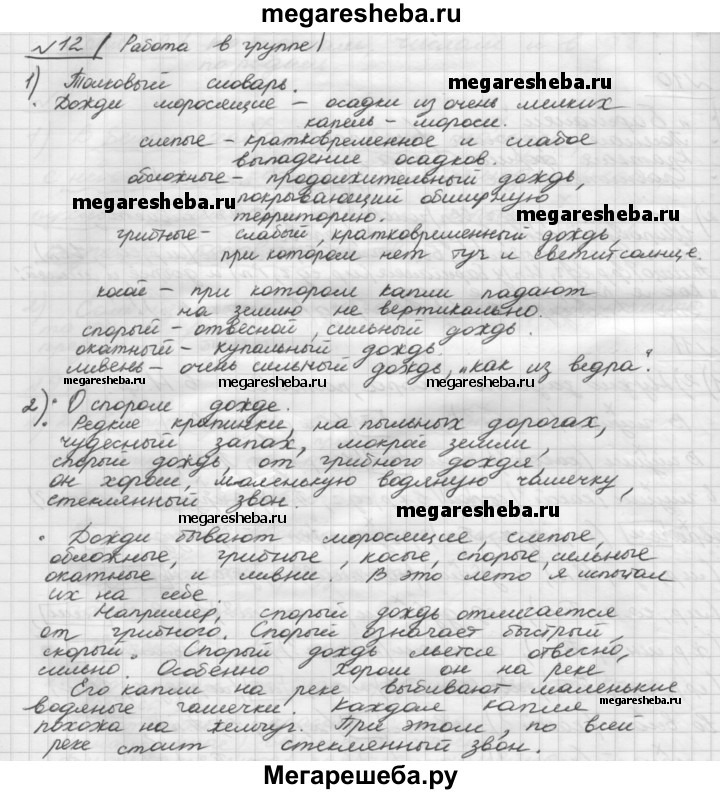 megaresheba.ru
№12 (Работа в группе)
1) Толковый словарь.
megaresheba.ru
• Дожди моросящие – осадки из очень мелких
капель – мороси.
слепые – кратковременное и слабое
выпадение осадков.
обложные – продолжительный дождь,
megaresheba.ru
покрывающий обширную
территорию.
megaresheba.ru
грибные – слабый, кратковременный дождь,
при котором нет туч и светит солнце.
косой – при котором капли падают
на землю не вертикально.
спорый – отвесной, сильный дождь.
окатный – купальный дождь.
ливень – очень сильный дождь, "как из ведра".
megaresheba.ru
megaresheba.ru
megaresheba.ru
2) • О спором дожде.
• Редкие крапинки, на пыльных дорогах,
чудесный запах, мокрой земли,
спорый дождь, от грибного дождя,
он хорош, маленькую водяную чашечку,
стеклянный звон.
megaresheba.ru
megaresheba.ru
• Дожди бывают моросящие, слепые,
обложные, грибные, косые, спорые, сильные
окатные и ливни. В это лето я испытал
их на себе.
Например, спорый дождь отличается
от грибного. Спорый означает быстрый,
скорый. Спорый дождь льется отвесно,
сильно. Особенно хорош он на реке
Его капли на реке выбивают маленькие
водяные чашечки. Каждая капля
megaresheba.ru
похожа на жемчуг. При этом, по всей
реке стоит стеклянный звон.
megaresheba.ru
Мегарешеба.ру